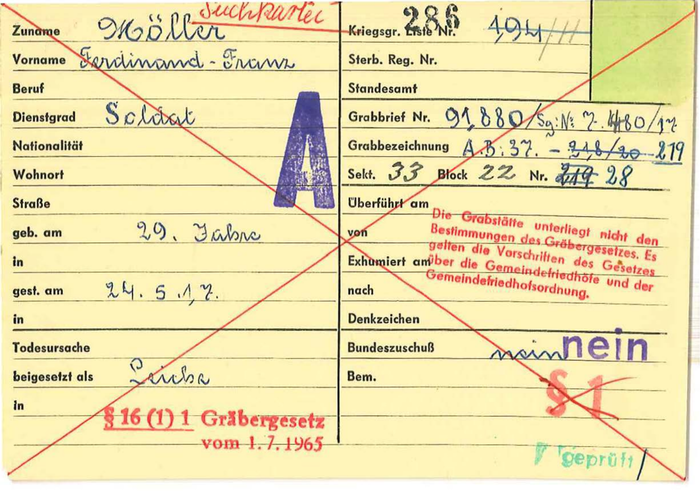 Suchkartei
Zuname Möller
Vorname Ferdinand-Franz
Beruf
Dienstgrad Soldat
Nationalität
Wohnort
Straße
geb. am 29. Jahre
in
gest. am 24. 5. 17.
in
Todesursache
beigesetzt als Leiche
in
§ 16 (1) 1 Gräbergesetz
vom 1. 7. 1965
A
286
Kriegsgr. Liste Nr. 194
Sterb. Reg. Nr.
Standesamt
Grabbrief Nr. 91,880/Sg: №: 7. 480/17
Grabbezeichnung A.B: 37. - 218/20 219
Sekt. 33 Block 22 Nr. 219 28
Überführt am
von
Exhumiert am
nach
Die Grabstätte unterliegt nicht den
Bestimmungen des Gräbergesetzes. Es
gelten die Vorschriften des Gesetzes
über die Gemeindefriedhöfe und der
Gemeindefriedhofsordnung.
Denkzeichen
Bundeszuschuß nein nein
Bem.
§ 1
geprüft